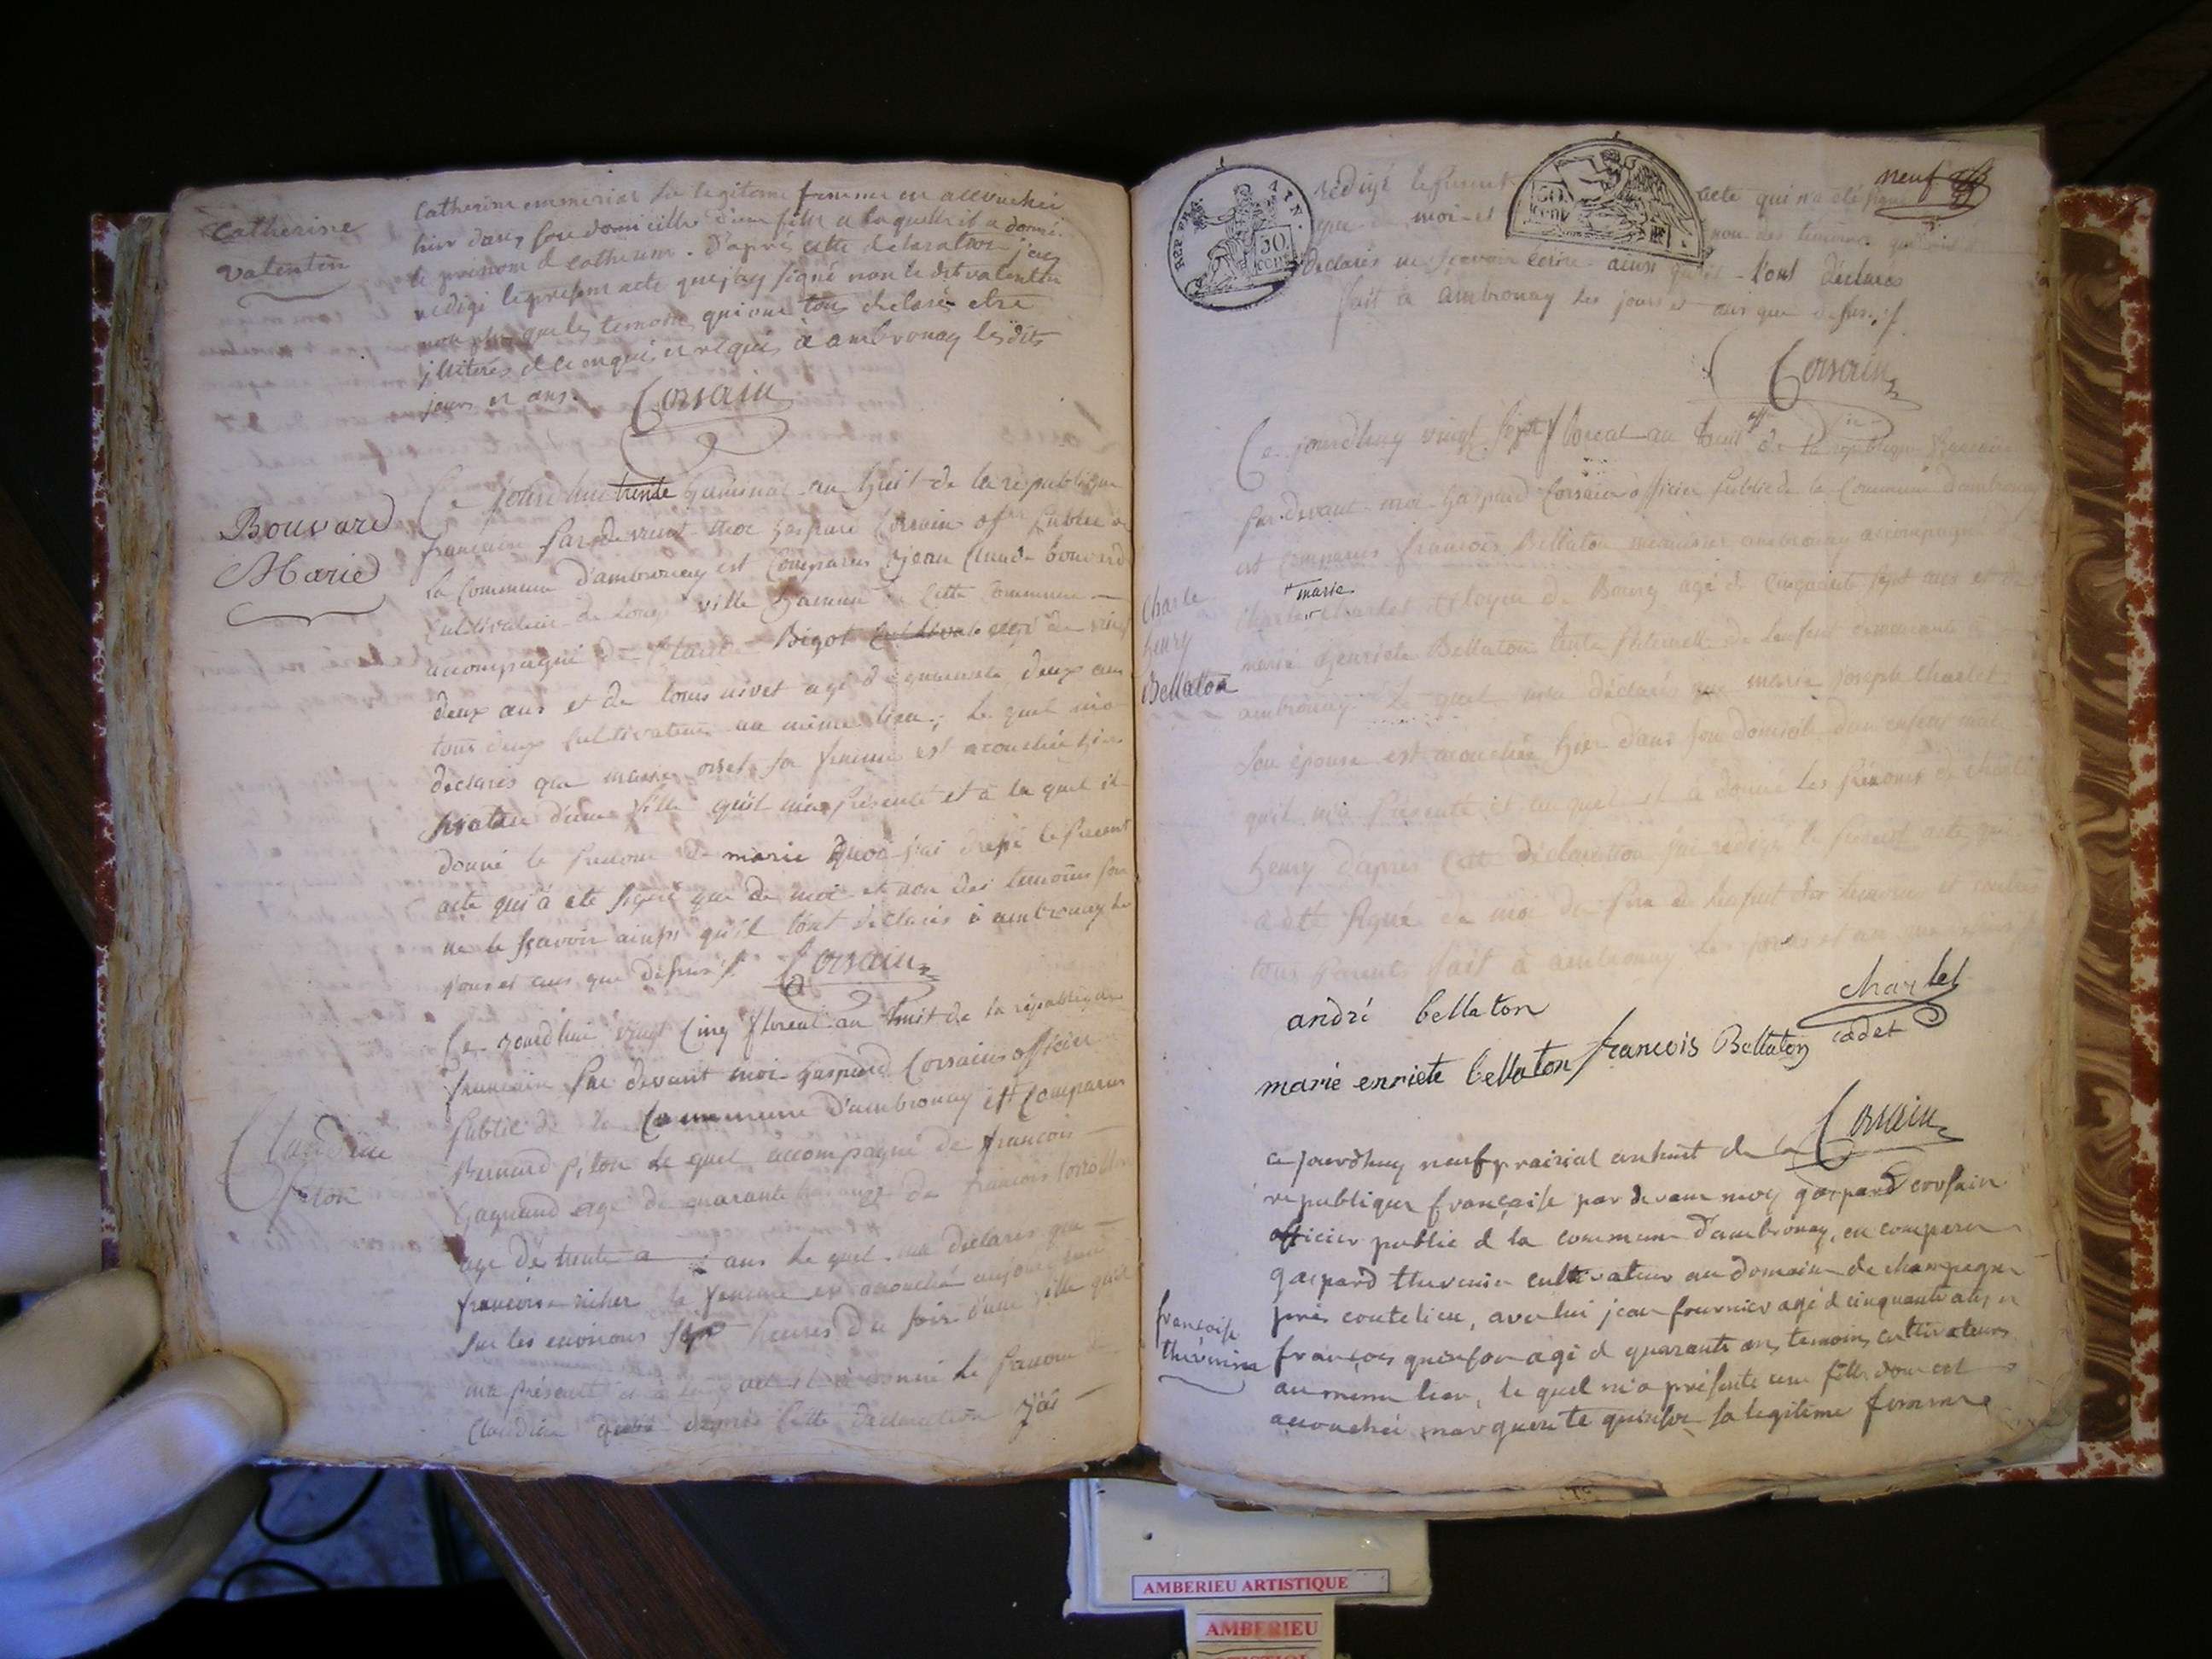 Catherine
valentin
Catherine sa legitime femme en accouchée
hier dans son domicille d'une fille a laquelle il a donné
le prenom de catherine. D'après cette declaration j'ay
redigé le present acte que j'ay signé non le dit valentin
non plus que les temoins qui ont tous declaré être
illiterés de ce enquis et requis à ambronay les dits
jours et ans.
Corsain
Bouvard
Marie
Ce jourdhui trente Germinal an huit de la republique
francaise par devant moi gaspard Corsain of.er public de
la Commune d'ambronay est Comparus jean Claude bouvard
Cultivateur de longe ville hameau de Cette Commune
accompagné de Claude Bigot agé de vingt
deux ans et de louis nivet agé de quarante deux ans
tous deux Cultivateurs au même lieu, le quel m'a
declarés que marie orset sa femme est acouchée hier
d'une fille qu'il m'a présenté et à la quel il
donné le prenom de marie de quoi j'ai dressé le present
acte qui a été signé que de moi et non des temoins pour
ne le sçavoir ainsi qu'il l'ont déclarés à ambronay les
jours et ans que dessus
Corsain
Claudine
pilon
Ce jourd'hui vingt Cinq floreal an huit de la république
francaise par devant moi gaspard Corsain officier
public de la Commune d'ambronay est Comparus
Bernard pilon le quel accompagné de francois
Gagnaud agé de quarante ans de francois
age de trente a ans le quel ma declarés que
francoise richer sa femme est acouché aujourdhui
sur les environs sept heures du soir d'une fille qu'il
ma présenté et à la quel il a donné le prenom de
Claudine d'apres Cette declaration j'ai
neuf
REP. FRA. AYN.
50 cent
50 cent
rédigé le present acte qui n'a été signé
que de moi et non des temoins
declarés ne sçavoir ecrire ainsi qu'il l'ont déclarés
fait à ambronay les jours et ans que dessus
Corsain
Charle
henry
Bellaton
Ce jourdhuy vingt sept floreal an huit de la republique francaise
par devant moi Gaspard Corsain officier public de la Commune d'ambronay
est comparus francois Bellaton ambronay accompagné
marie
Charlet Citoyen de Bourg agé de Cinquante sept ans et de
marie henriete Bellaton tante paternelle de l'enfant demeurant à
ambronay le quel m'a déclarés que marie joseph Charlet
son épouse est acouchée hier dans son domicile d'un enfant mâle
qu'il m'a présenté et au quel il à donné les prénoms de charle
henry d'apres Cette déclaration j'ai redigé le present acte qui
a été signé de moi du père de l'enfant des temoins et
tous parents fait à ambronay les jours et an
andré bellaton
charlet
marie enriete bellaton francois Bellaton cadet
Corsain
françoise
thevenin
ce jourdhuy neuf prairial an huit de la
republique française par devant moy gaspard corsain
officier public de la commune d'ambronay, en comparu
gaspard thevenin cultivateur au domaine de champagne
près coutelieu, avec lui jean fournier agé de cinquante ans et
françois quinson agé de quarante ans, temoins cultivateurs
au meme lieu, le quel m'a présenté une fille dont est
accouchée marguerite quinson sa legitime femme
AMBERIEU ARTISTIQUE
AMBERIEU